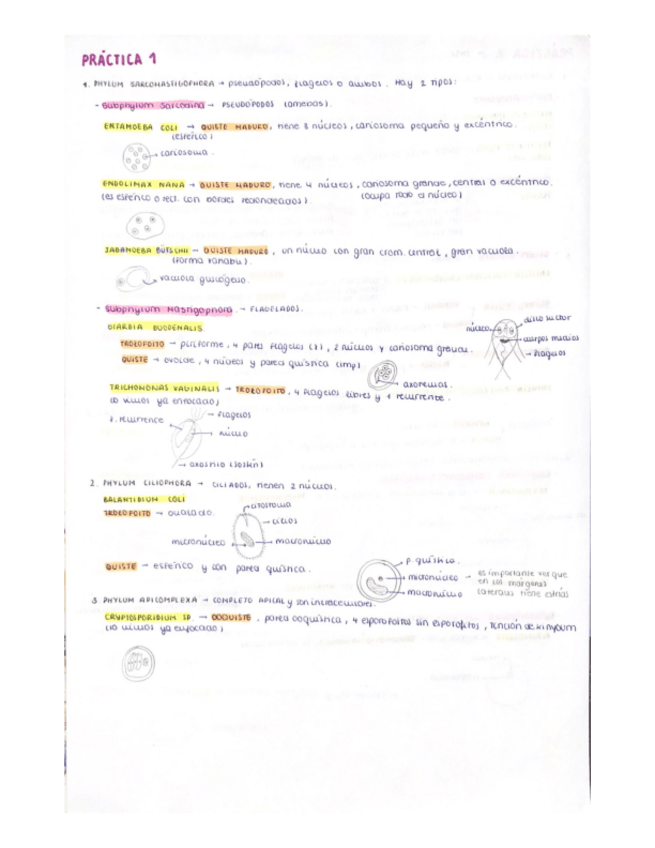 PRÁCTICA 1
1. PHYLUM SARCOMASTIGOPHORA → pseudópodos, flagelos o ambos. Hay 2 tipos:
- Subphylum Sarcodina → PSEUDÓPODOS (amebas).
ENTAMOEBA COLI → QUISTE MADURO, tiene 8 núcleos, cariosoma pequeño y excéntrico.
(esférico)
→ cariosoma.
ENDOLIMAX NANA → QUISTE MADURO, tiene 4 núcleos, cariosoma grande, central o excéntrico.
(es esférico o rect. con bordes redondeados) (ocupa todo el núcleo)
IODAMOEBA BÜTSCHLII → QUISTE MADURO, un núcleo con gran crom. central, gran vacuola.
(forma variable)
→ vacuola glucógeno.
- Subphylum Mastigophora → FLAGELADOS.
GIARDIA DUODENALIS.
TROFOFOITO → piriforme, 4 pares flagelos (8), 2 núcleos y cariosoma grande.
núcleo
→ disco suctor
→ cuerpos medios
→ flagelos
QUISTE → ovoide, 4 núcleos y pared quística (imp).
→ axonemas.
TRICHOMONAS VAGINALIS → TROFOFOITO, 4 flagelos libres y 1 recurrente.
(lo vimos ya enfocado)
f. recurrente
→ flagelos
→ núcleo
→ axostilo
2. PHYLUM CILIOPHORA → CILIADOS, tienen 2 núcleos.
BALANTIDIUM COLI
TROFOFOITO → ovalado.
→ citostoma
→ cilios
micronúcleo
macronúcleo
QUISTE → esférico y con pared quística.
→ p. quística.
→ micronúcleo
→ macronúcleo
→ es importante ver que
en sus márgenes
laterales tiene estrías
3. PHYLUM APICOMPLEXA → COMPLEJO APICAL y son intracelulares.
CRYPTOSPORIDIUM SP. → OOQUISTE, pared ooquística, 4 esporozoitos sin esporoquistes, tinción de kinyoum
(lo vimos ya enfocado)